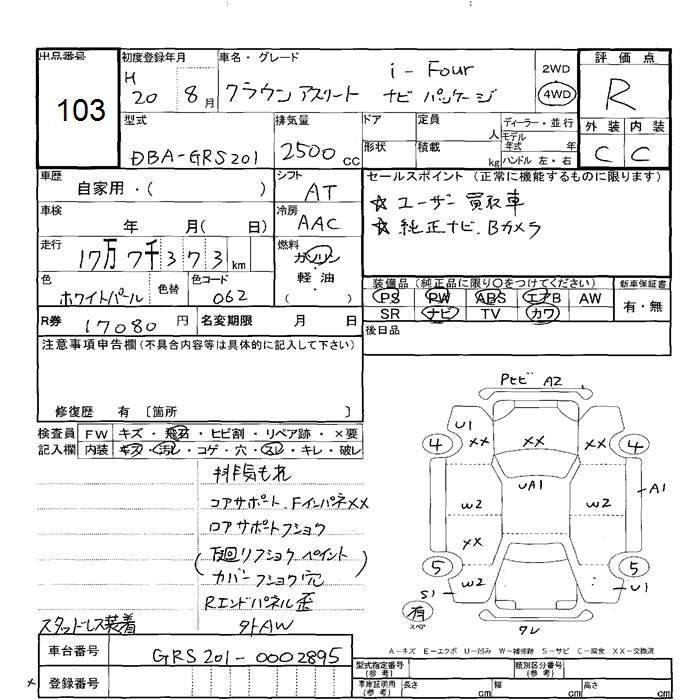 出品番号
103
初度登録年月
H
20 8月
車名・グレード
i-Four
クラウンアスリート ナビパッケージ
2WD
4WD
評価点
R
外装 内装
C C
型式
DBA-GRS201
排気量
2500cc
ドア
定員
人
形状
積載
kg
ディーラー・並行
モデル
年式 年
ハンドル 左・右
車歴
自家用・( )
シフト
AT
車検
年 月( 日)
冷房
AAC
走行
17万7千373km
燃料
ガソリン
軽・油
( )
色
ホワイトパール
色替
色コード
062
セールスポイント(正常に機能するものに限ります)
☆ユーザー買取車
☆純正ナビ.Bカメラ
装備品(純正品に限り○をつけてください)
新車保証書
PS PW ABS エアB AW
SR ナビ TV カワ
有・無
R券 17080円
名変期限 月 日
後日品
注意事項申告欄(不具合内容等は具体的に記入して下さい)
修復歴 有 〔箇所 〕
検査員 FW キズ・飛石・ヒビ割・リペア跡・×要
記入欄 内装 キズ・汚レ・コゲ・穴・スレ・キレ・破レ
排気もれ
コアサポート.FインパネXX
ロアサポートフショク
(下廻リフショクペイント
カバーフショク穴)
Rエンドパネル歪
スタッドレス装着
外AW
PセビA2
U1
XX
XX
XX
4
4
UA1
W2
W2
A1
XX
5
5
W2
S1
U1
有
スペア
クレ
A-キズ E-エクボ U-凹み W-補修跡 S-サビ C-腐食 XX-交換済
車台番号
GRS201-0002895
登録番号
×
型式指定番号
(参考)
類別区分番号
(参考)
車庫証明用
(参考)
長さ cm
幅 cm
高さ cm